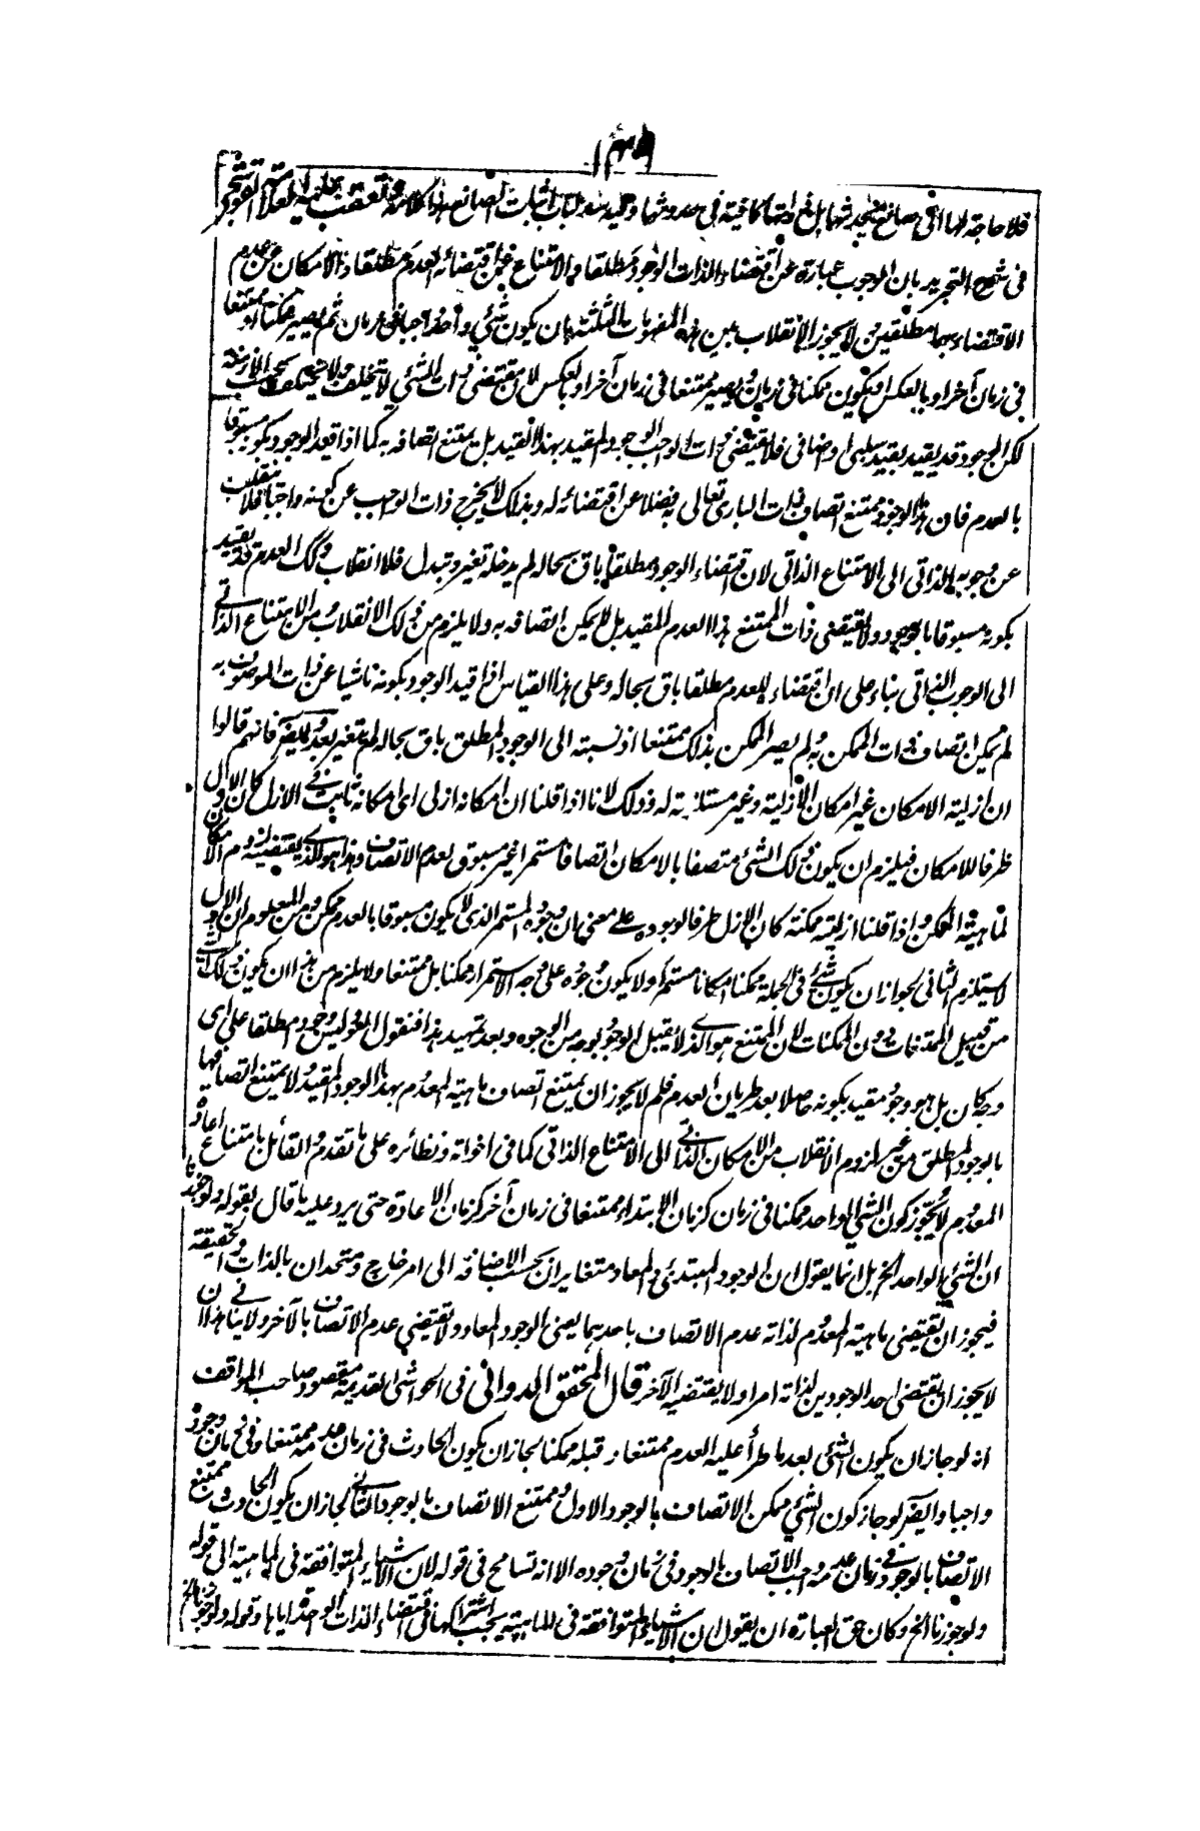 فلا حاجة لها الى صانع يحدثها بل ذواتها كافية فى حدوثها وفيه سد لباب اثبات الصانع هذا كلامه وتعقب عليه العلامة القوشجى
فى شرح التجريد بان الوجوب عبارة عن اقتضاء الذات الوجود مطلقا والامتناع عن اقتضائه العدم مطلقا والامكان عن عدم
الاقتضاء بهما مطلقين ولا يجوز الانقلاب بين هذه المفهومات الثلثة بان يكون شئ واحد واجبا فى زمان ثم يصير ممكنا او ممتنعا
فى زمان آخر او بالعكس او يكون ممكنا فى زمان ويصير ممتنعا فى زمان آخر او بالعكس لان مقتضى ذات الشئ لا يتخلف ولا يختلف بحسب الازمنة
لكن الوجود قد يقيد بقيد سلبى او اضافى فلا يقتضى ذات الواجب الوجود المقيد بهذا القيد بل يمتنع اتصافه به كما اذا قيد الوجود بكونه مسبوقا
بالعدم فان هذا الوجود ممتنع اتصاف ذات البارى تعالى به فضلا عن اقتضائه له وبذلك لا يخرج ذات الواجب عن كونه واجبا فلا ينقلب
عن وجوبه الذاتى الى الامتناع الذاتى لان اقتضاء الوجود مطلقا باق بحاله لم يدخله تغير وتبدل فلا انقلاب وكذلك العدم قد يقيد
بكونه مسبوقا بالوجود ولا يقتضى ذات الممتنع هذا العدم المقيد بل لا يمكن اتصافه به ولا يلزم من ذلك الانقلاب من الامتناع الذاتى
الى الوجوب الذاتى بناء على ان اقتضاء للعدم مطلقا باق بحاله وعلى هذا القياس اذا قيد الوجود بكونه ناشيا عن ذات الموصوف به
لم يمكن اتصاف ذات الممكن به ولم يصر الممكن بذلك ممتنعا اذ نسبته الى الوجود المطلق باق بحاله لم يتغير بعد وايضا فانهم قالوا
ان ازلية الامكان غير امكان الازلية وغير مستلزمة له وذلك لانا اذا قلنا ان امكانه ازلى اى امكانه ثابت فى الازل كان الازل
ظرفا للامكان فيلزم ان يكون ذلك الشئ متصفا بالامكان اتصافا مستمرا غير مسبوق بعدم الاتصاف وهذا هو الذى يقتضيه لزوم الامكان
لماهية الممكن واذا قلنا ازليته ممكنة كان الازل ظرفا لوجوده على معنى ان وجوده المستمر الذى لا يكون مسبوقا بالعدم ممكن ومن المعلوم ان الاول
لا يستلزم الثانى لجواز ان يكون شئ فى الجملة ممكنا امكانا مستمرا ولا يكون وجوده على وجه الاستمرار ممكنا بل ممتنعا ولا يلزم من هذا ان يكون ذلك الشئ
من قبيل الممتنعات دون الممكنات لان الممتنع هو الذى لا يقبل الوجود بوجه من الوجوه وبعد تمهيد هذا فنقول العود ليس وجود مطلقا على اى
وجه كان بل هو وجود مقيد بكونه حاصلا بعد طريان العدم فلم لا يجوز ان يمتنع اتصاف ماهية المعدوم بهذا الوجود المقيد ولا يمتنع اتصافها
بالوجود المطلق من غير لزوم الانقلاب من الامكان الذاتى الى الامتناع الذاتى كما فى اخواته ونظائره على ما تقدم والقائل بامتناع اعادة
المعدوم لا يجوز كون الشئ الواحد ممكنا فى زمان كزمان الابتداء ممتنعا فى زمان آخر كزمان الاعادة حتى يرد عليه ما قال بقوله ولو جوزنا
ان الشئ الواحد الخ بل انما يقول ان الوجود المبتدئ والمعاد متغايران بحسب الاضافة الى امر خارج ومتحدان بالذات والحقيقة
فيجوز ان تقتضى ماهية المعدوم لذاته عدم الاتصاف باحدهما يعنى الوجود المعاد ولا تقتضى عدم الاتصاف بالآخر ولا ينافى هذا ان
لا يجوز ان يقتضى احد الوجودين لذاته امرا ولا يقتضيه الآخر قال المحقق الدوانى فى الحواشى القديمة مقصود صاحب المواقف
انه لو جاز ان يكون الشئ بعد ما طرأ عليه العدم ممتنعا وقبله ممكنا لجاز ان يكون الحادث فى زمان عدمه ممتنعا وفى زمان وجوده
واجبا وايضا لو جاز كون الشئ ممكن الاتصاف بالوجود الاول وممتنع الاتصاف بالوجود الثانى لجاز ان يكون الحادث ممتنع
الاتصاف بالوجود فى زمان عدمه واجب الاتصاف بالوجود فى زمان وجوده الا انه تسامح فى قوله لان الاشياء المتوافقة فى الماهية الى قوله
ولو جوزنا الخ وكان حق العبارة ان يقول ان الاشياء المتوافقة فى الماهية يجب اشتراكها فى اقتضاء الذات الواحدة اياها وقوله ولو جوزنا الخ